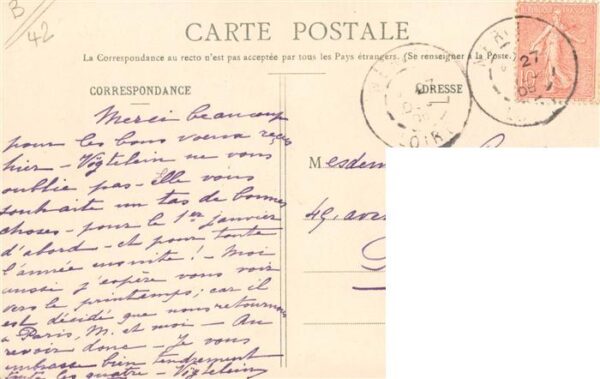 B/42
CARTE POSTALE
La Correspondance au recto n'est pas acceptée par tous les Pays étrangers. (Se renseigner à la Poste.)
CORRESPONDANCE
ADRESSE
27
LOIR
Merci beaucoup
pour les bons voeux reçus
hier - Vögtelein ne vous
oublie pas - Elle vous
souhaite un tas de bonnes
choses - pour le 1er janvier
d'abord - et pour toute
l'année ensuite ! - Moi
aussi j'espère vous voir
vers le printemps ; car il
est décidé que nous retournons
à Paris, M. et moi - Au
revoir donc - Je vous
embrasse bien tendrement
toutes les quatre - Vögtelein
Mesdem
49, aven